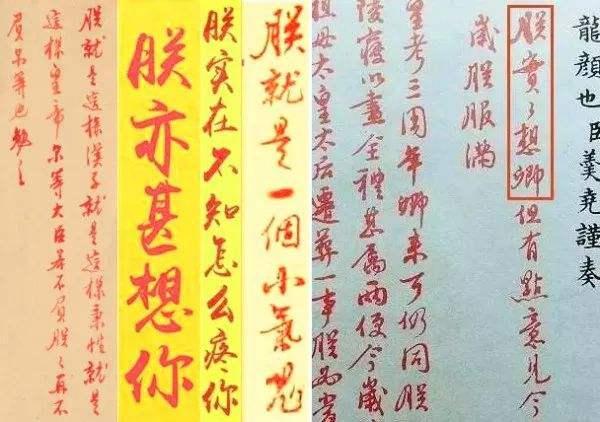 龍顏也臣羹堯謹奏
朕實々想卿但有點意見今
歲朕服滿
皇考三周年卿来可仍同朕
陵寢以盡全禮甚屬兩便今歲
祖母太皇太后遷葬一事朕
朕就是一個小氣鬼
朕实在不知怎么疼你
朕亦甚想你
朕就是這樣漢子就是這樣秉性就是
這樣皇帝尔等大臣若不負朕々再不
負尔等也勉之